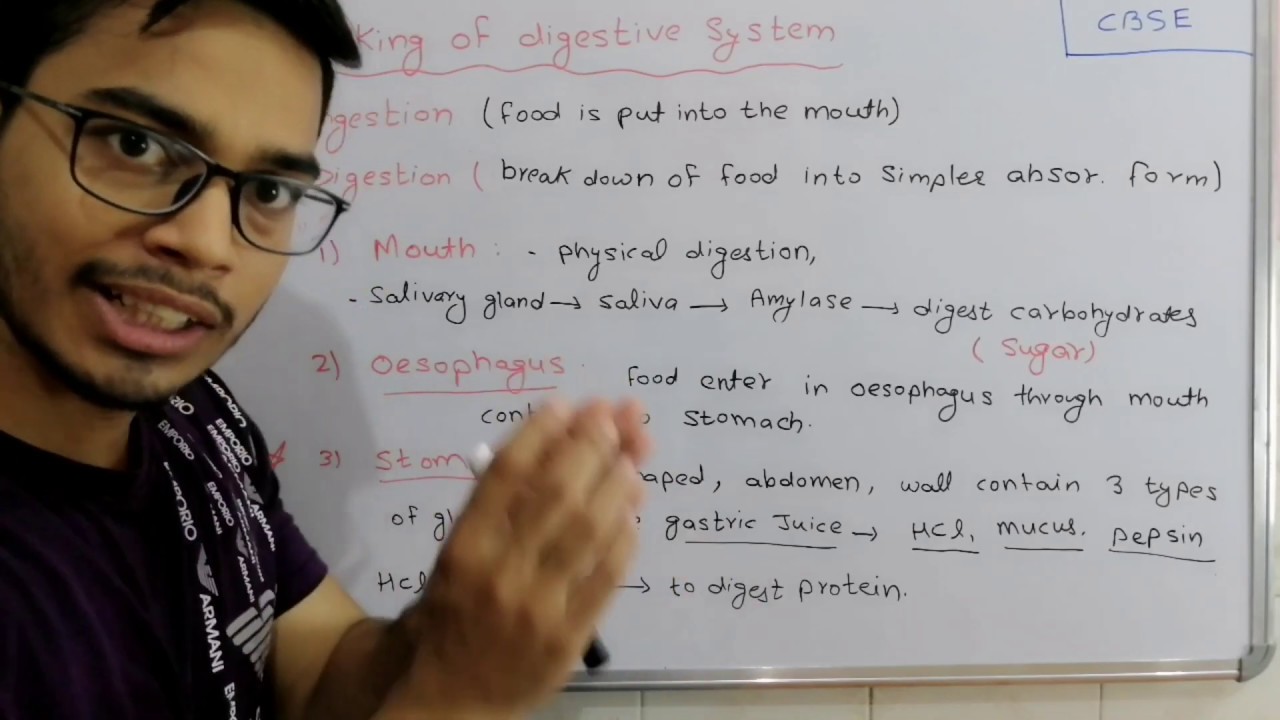 king of digestive System
CBSE
gestion (food is put into the mouth)
Digestion ( break down of food into Simpler absor. form)
1) Mouth : - physical digestion,
- Salivary gland → saliva → Amylase → digest carbohydrates
( Sugar)
2) Oesophagus food enter in oesophagus through mouth
cont stomach.
3) Stom aped, abdomen, wall contain 3 types
of gl gastric Juice → HCl, mucus. pepsin
HCl → to digest protein.
EMPORIO
ARMANI
EMPORIO
ARMANI